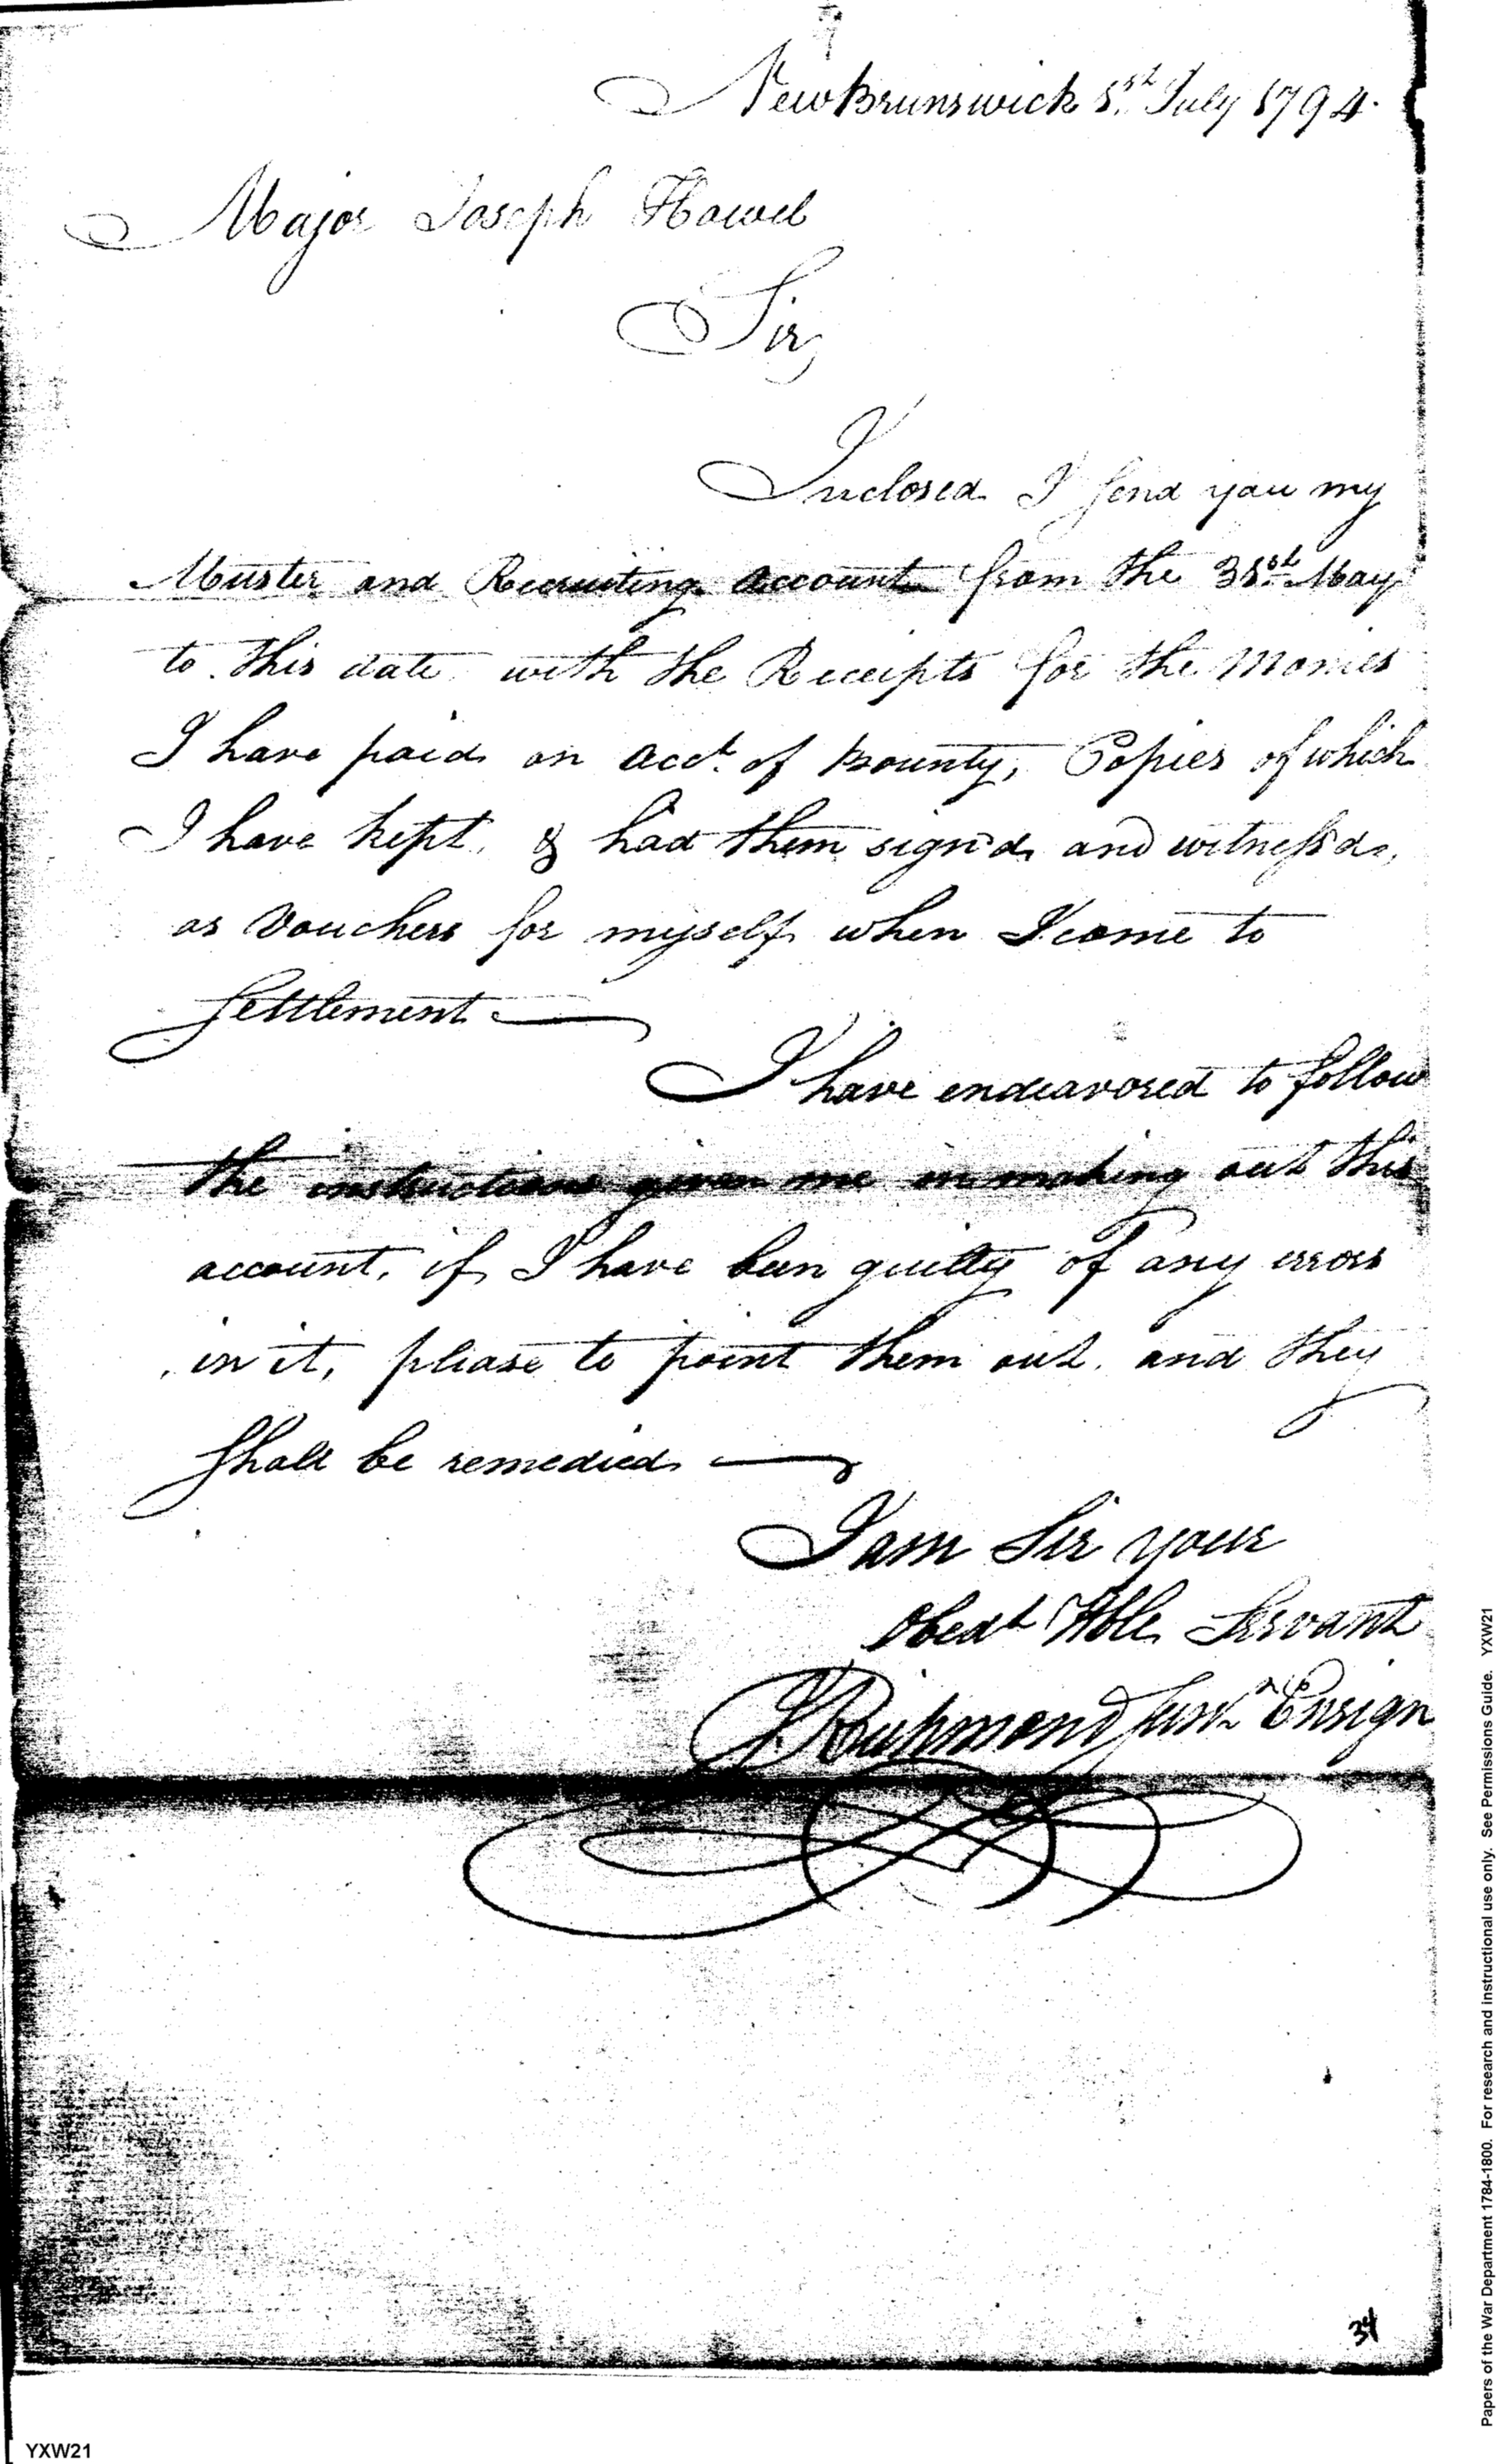 New Brunswick 1st July 1794.
Major Joseph Howel
Sir,
Inclosed I send you my
Muster and Recruiting account from the 31st May
to this date with the Receipts for the Monies
I have paid on acct. of Bounty, Copies of which
I have kept, & had them sign'd and witness'd,
as Vouchers for myself when I come to
Settlement
I have endeavored to follow
the instructions given me in making out this
account, if I have been guilty of any errors
in it, please to point them out, and they
shall be remedied
I am Sir your
Obedt Hble Servant
Richmond Ensign
34
YXW21
Papers of the War Department 1784-1800. For research and instructional use only. See Permissions Guide. YXW21